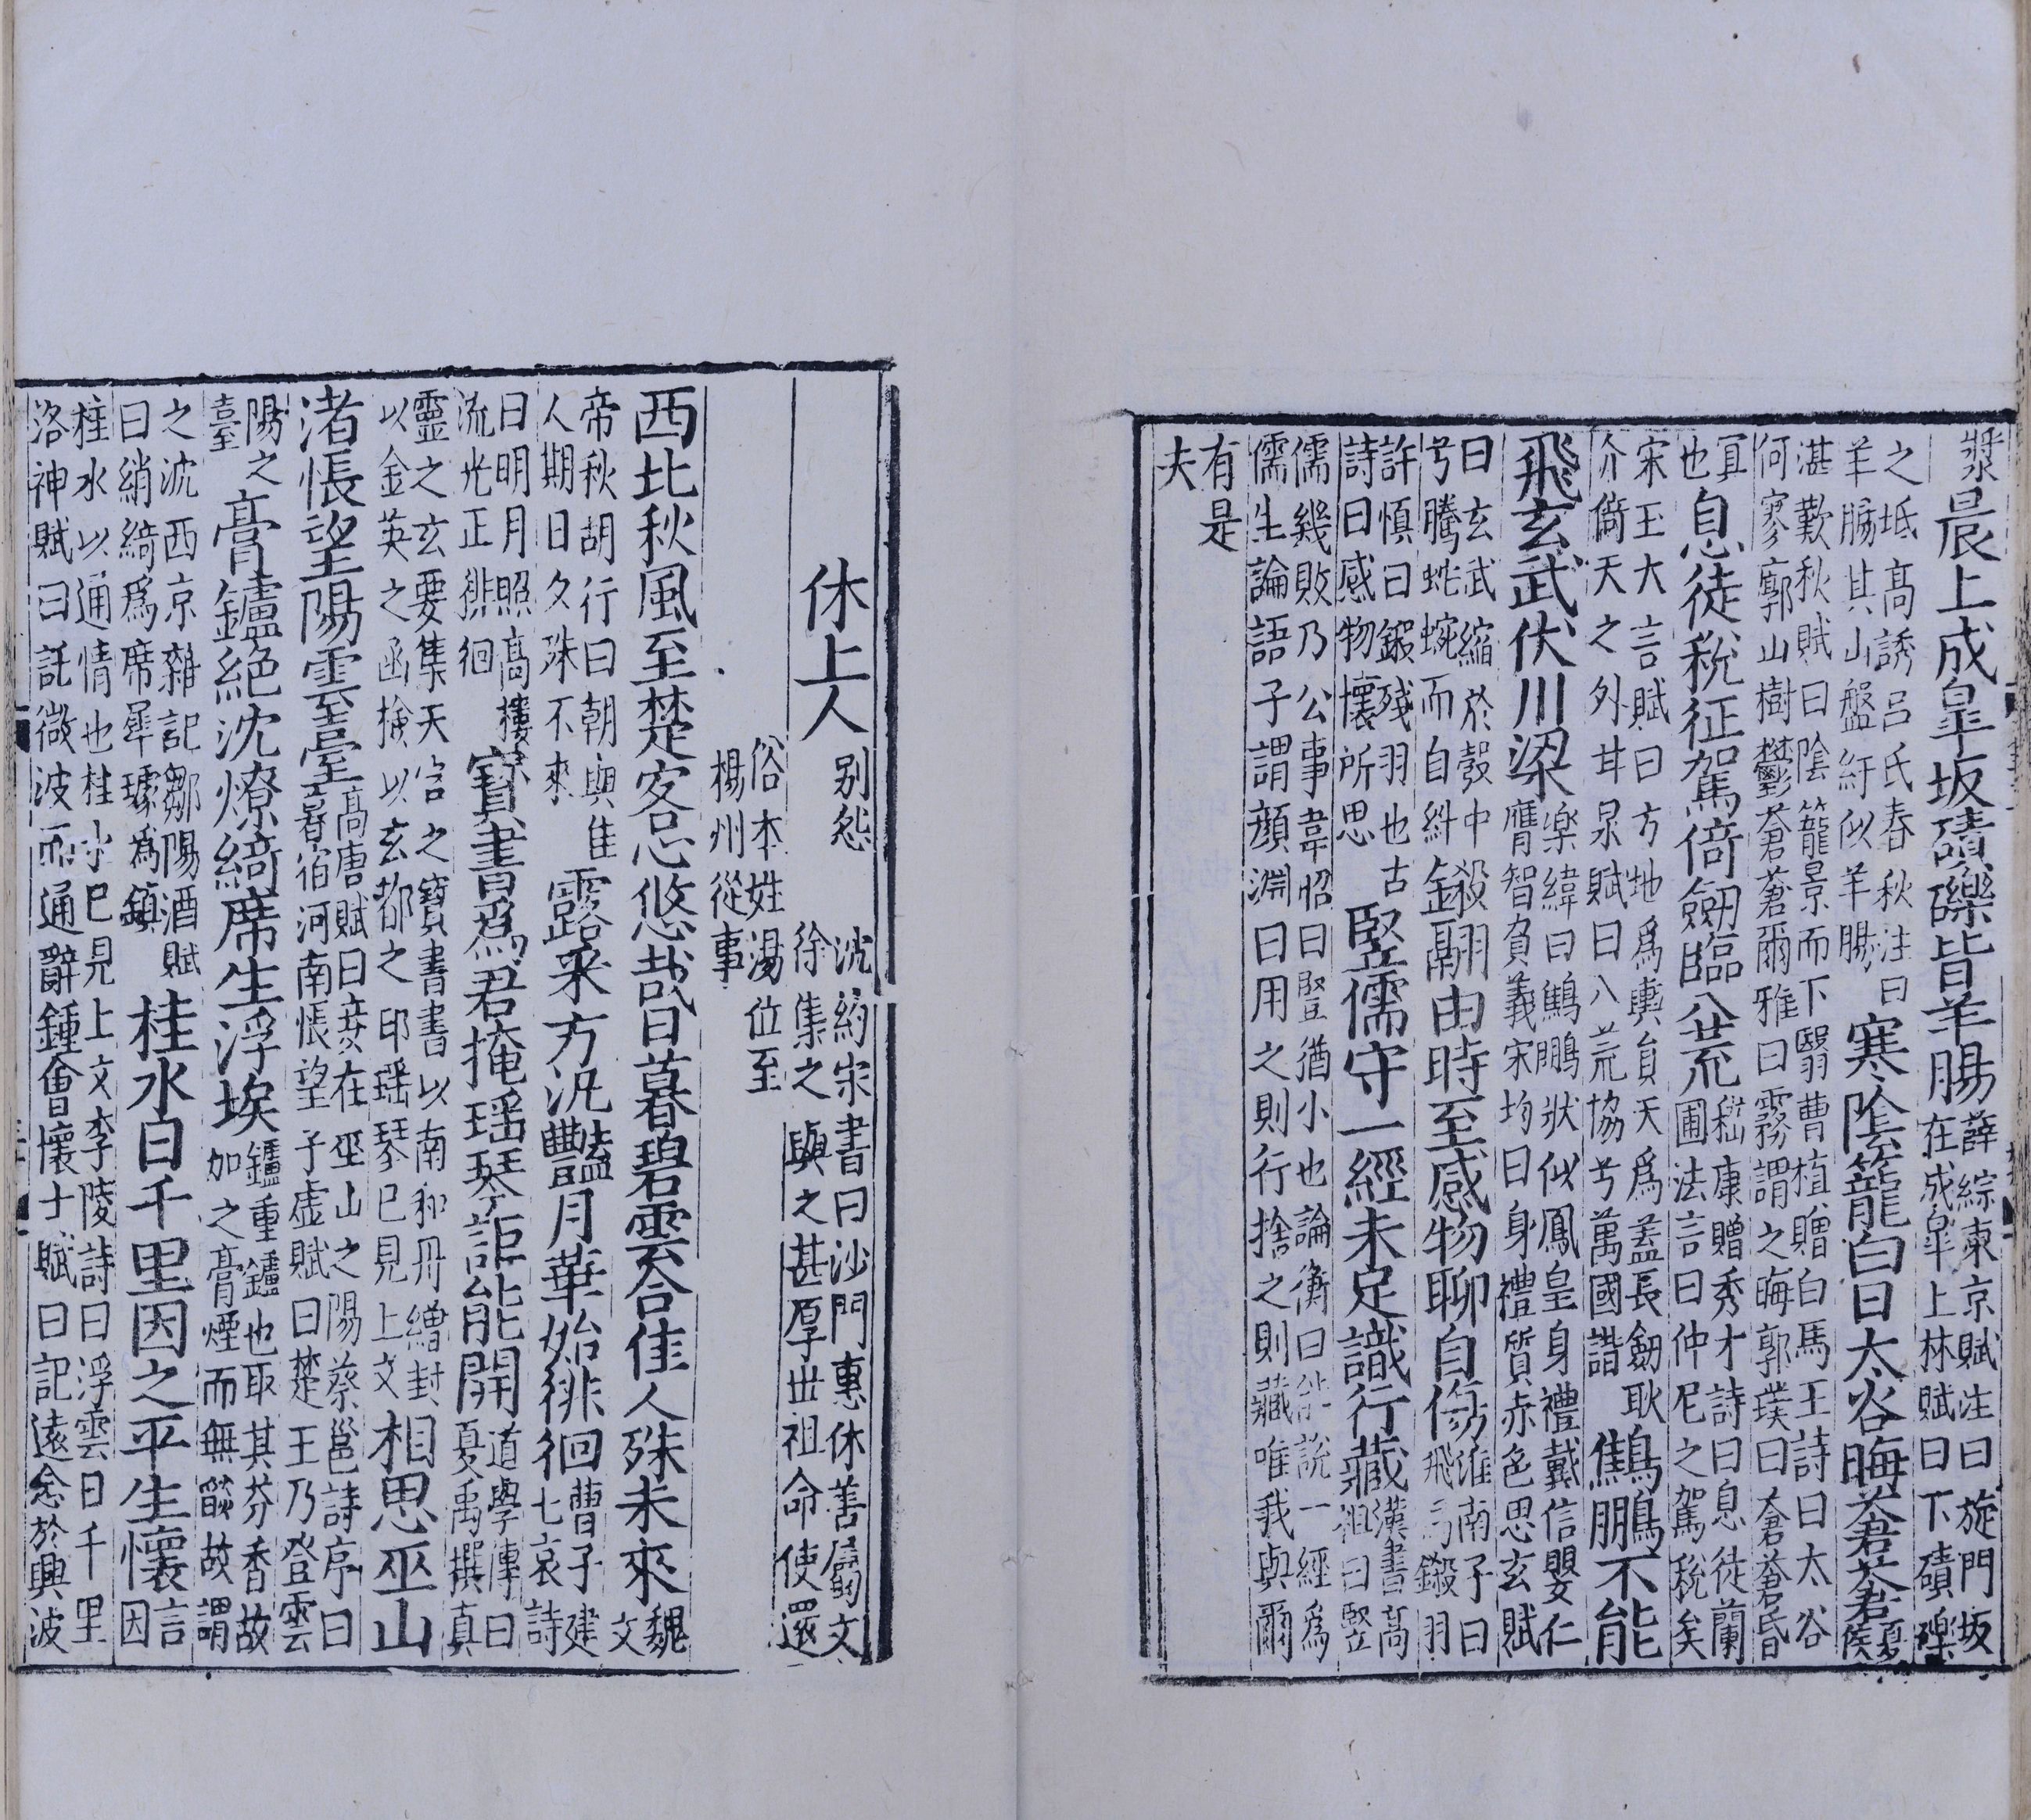 漿晨上成皐坂磧礫皆羊腸薛綜東京賦注曰旋門坂在成皐上林賦曰下磧礫
之坻高誘呂氏春秋注曰羊腸其山盤紆似羊腸寒陰籠白日太谷晦蒼蒼夏侯
湛歎秋賦曰陰籠景而下翳曹植贈白馬王詩曰太谷何寥廓山樹鬱蒼蒼爾雅曰霧謂之晦郭璞曰蒼蒼昏
冥也息徒稅征駕倚劒臨八荒嵇康贈秀才詩曰息徒蘭圃法言曰仲尼之駕稅矣
宋玉大言賦曰方地爲輿員天爲蓋長劒耿介倚天之外甘泉賦曰八荒協兮萬國諧鷦鵬不能
飛玄武伏川梁樂緯曰鷦鵬狀似鳳皇身禮戴信嬰仁膺智負義宋均曰身禮質赤色思玄賦
曰玄武縮於殼中兮騰虵蜿而自糾鎩翮由時至感物聊自傷淮南子曰飛鳥鎩羽
許慎曰鎩殘羽也古詩曰感物懷所思豎儒守一經未足識行藏漢書高祖曰豎
儒幾敗乃公事韋昭曰豎猶小也論衡曰能說一經爲儒生論語子謂顏淵曰用之則行捨之則藏唯我與爾
有是夫
休上人別怨 沈約宋書曰沙門惠休善屬文徐集之與之甚厚世祖命使還
俗本姓湯位至楊州從事
西北秋風至楚客心悠哉日暮碧雲合佳人殊未來魏文
帝秋胡行曰朝與佳人期日夕殊不來露采方汎豔月華始徘徊曹子建七哀詩
曰明月照高樓流光正徘徊寶書爲君掩瑶琴詎能開道學傳曰夏禹撰真
靈之玄要集天官之寶書書以南和丹繒封以金英之函檢以玄都之印瑶琴已見上文相思巫山
渚悵望陽雲臺高唐賦曰妾在巫山之陽蔡邕詩序曰暮宿河南悵望子虛賦曰楚王乃登雲
陽之臺膏鑪絕沈燎綺席生浮埃鑪重鑪也取其芬香故加之膏煙而無燄故謂
之沈西京雜記鄒陽酒賦曰綃綺爲席犀璩爲鎮桂水日千里因之平生懷言因
桂水以通情也桂水已見上文李陵詩曰浮雲日千里洛神賦曰託微波而通辭鍾會懷士賦曰記遠念於興波